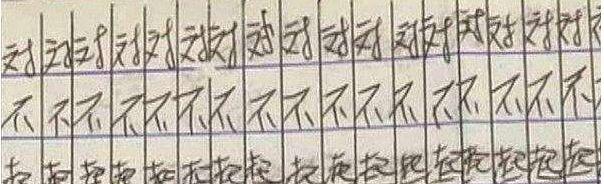 对对对对对对对对对对对对对对对对对
不不不不不不不不不不不不不不不不不
起起起起起起起起起起起起起起起起起